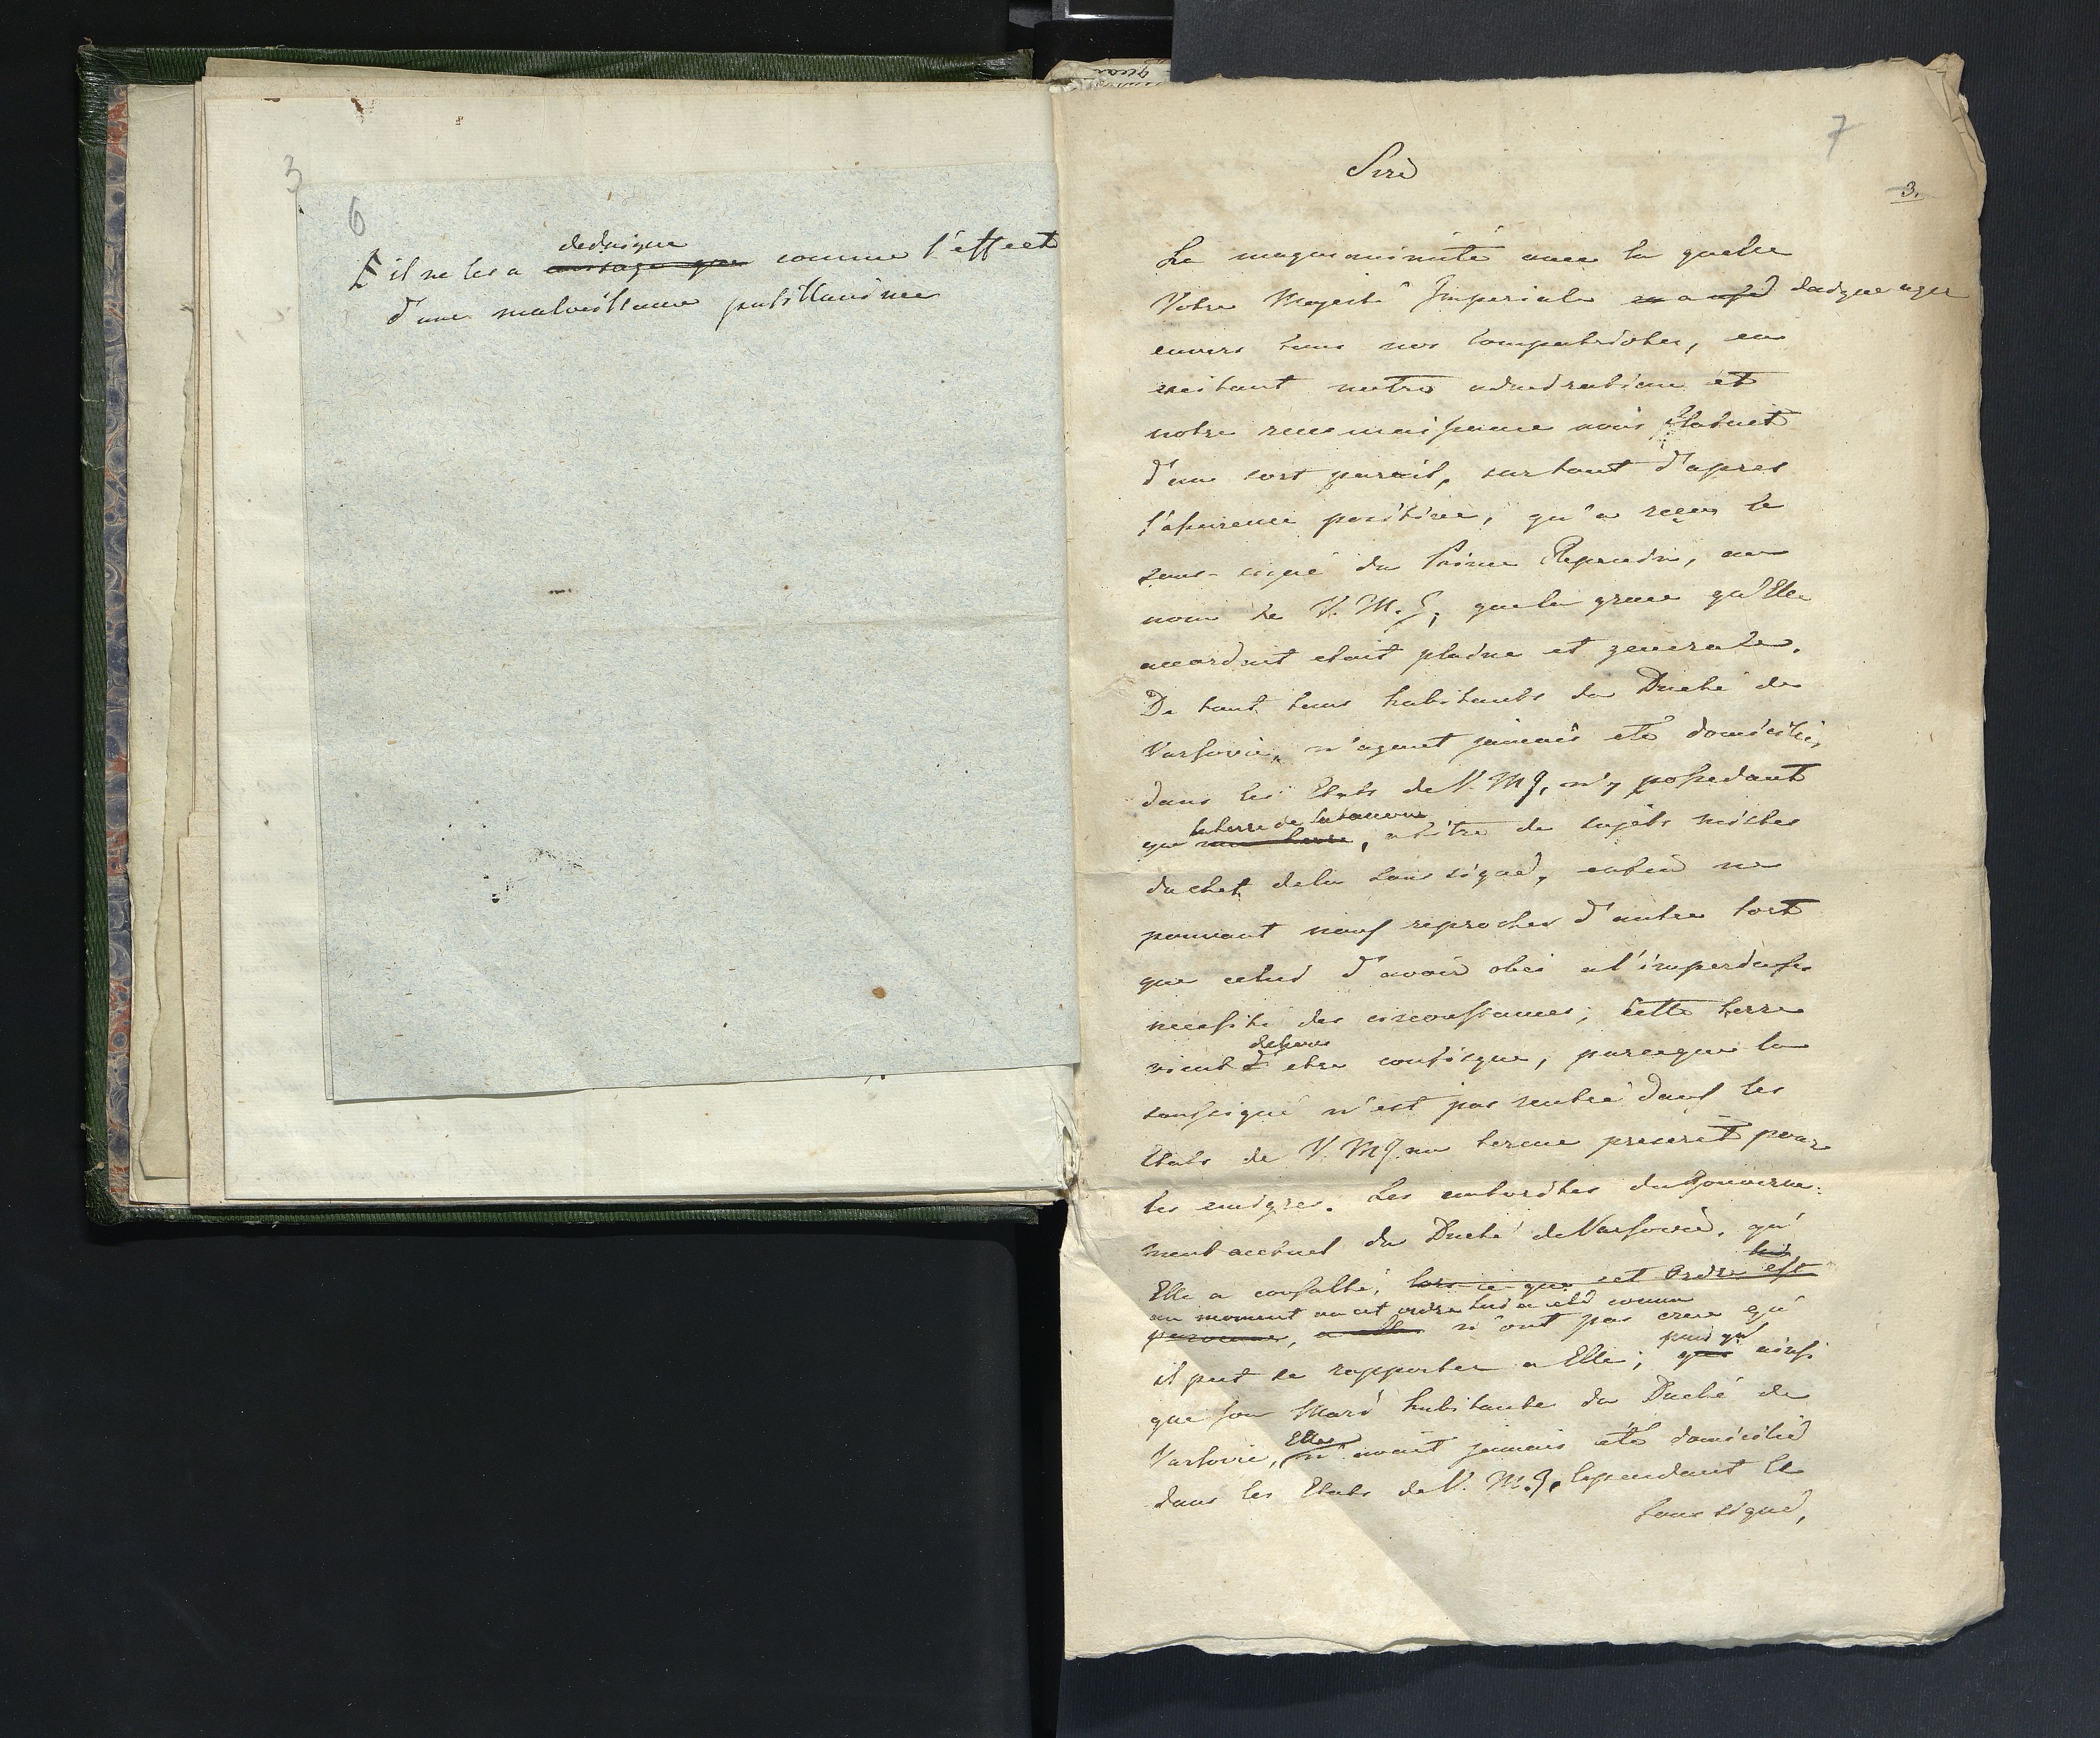 3
6
il ne les a dedaigne envisagé que comme l'effect
d'une malveillance pusillanimee
7
3.
Sire
La magnanimité avec la quelle
Votre Majesté Imperiale en a usé daigne agir
envers tous nos compatriotes, en
excitant notre admiration et
notre reconnaissance nous flatuet
d'un sort pareil, surtout d'apres
l'assurence positive, qu'a reçu le
sous-signé du Prince Repnin, au
nom de V. M. I, que la grace qu'Elle
accordoit etoit pleine et generale.
De tout tems habitants du Duché de
Varsovie, n'ayant jamais eté domiciliés
dans les Etats de V. M I, n'y possedant
la terre de
que une terre, a titre de sujets mixtes
du chef dela sous signé, enfin ne
pouvant nous reprocher d'autre tort
que celui d'avoir obei a l'imperieuse
necessité des circonstances; Cette terre
vient d'etre confisque, parceque la
soussigné n'est pas rentré dans les
Etats de V. M I au terme prescrit pour
les emigres. Les autorites du Gouverne-
ment actuel du Duché de Varsovie, qu'
lui
Elle a consulté, lors ce que cet Ordre est
au moment ou cet ordre lui a eté connu
parvenu, a elle n'ont pas cru qu'
puis qu'
il put se rapporter a Elle; que ainsi
que son Mari habitante du Duché de
Elle
Varsovie, n'avait jamais eté domicilié
dans les Etats de V. M. I, Cependant la
sous signé,